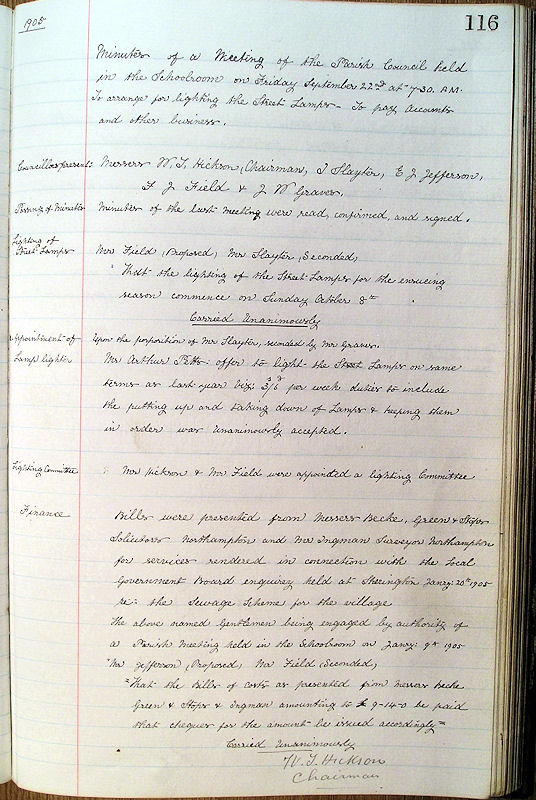 1905
116
Minutes of a Meeting of the Parish Council held
in the Schoolroom on Friday September 22nd at 7-30. P.M.
To arrange for lighting the Street Lamps - To pay Accounts
and other business.
Councillors present: Messers W. T. Hickson, (Chairman, J Slayter, E J Jefferson,
F J Field & J W Graves,
Passing of Minutes Minutes of the last meeting were read, confirmed, and signed.
Lighting of
Street Lamps Mr Field, (Proposed, Mr Slayter, (Seconded,
"That the lighting of the Street Lamps for the ensueing
season commence on Sunday October 8th"
Carried Unanimously
Appointment of Upon the porposition of Mr Slayter, seconded by Mr Graves.
Lamp lighter Mr Arthur offer to light the Street Lamps on same
terms as last year viz; 3/6 per week duties to include
the putting up and taking down of Lamps & keeping them
in order was Unanimously accepted.
Lighting Committee Mr Hickson & Mr Field were appointed a lighting Committee
Finance Bills were presented from Messers Becke, Green & Stops
Solicitors Northampton and Mr Ingman Surveyor Northampton
for services rendered in connection with the Local
Government Board enquirey held at Sherington Janry: 20th 1905
re: the Sewage Scheme for the village
The above named Gentlemen being engaged by authority of
a Parish Meeting held in the Schoolroom on Janry: 9th 1905
Mr Jefferson, (Proposed, Mr Field, (Seconded,
"That the Bills of costs as presented from Messers Becke
Green & Stops & Ingman amounting to £ 9-14-0 be paid
that cheques for the amount be issued accordingly"
Carried Unanimously
W. T. Hickson
Chairman